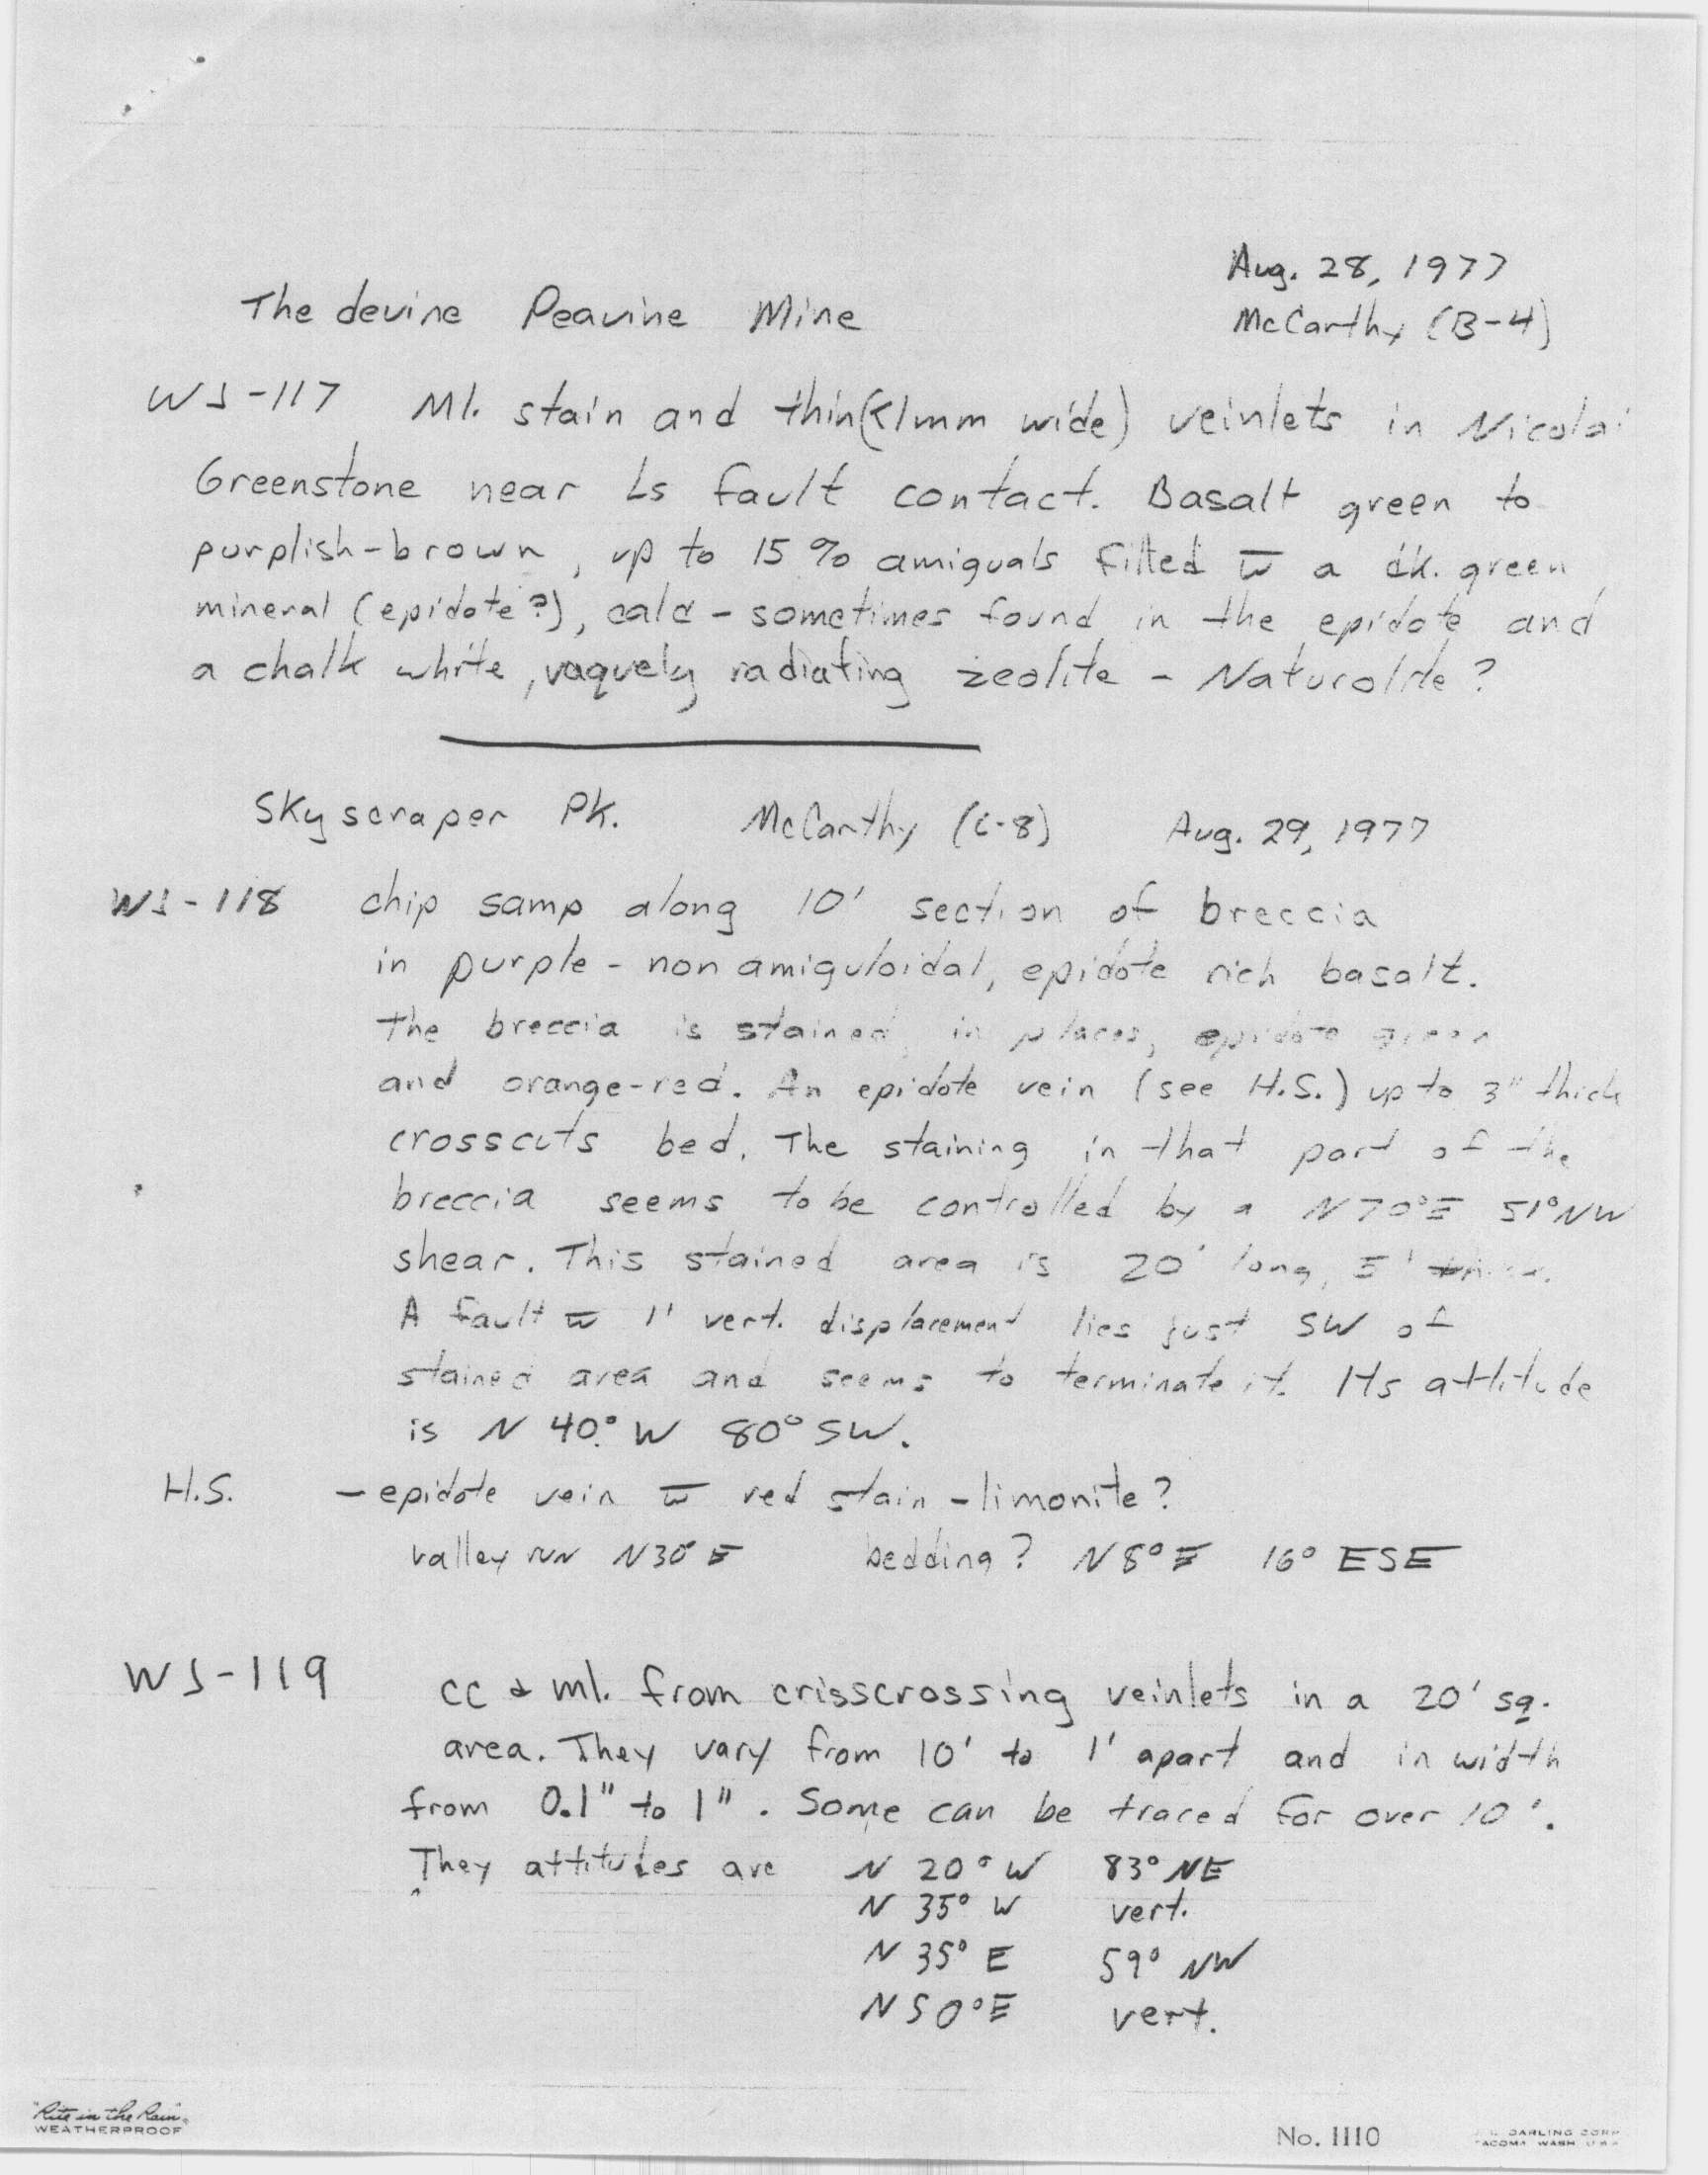 Aug. 28, 1977
The devine Peavine Mine McCarthy (B-4)
WS-117 Ml. stain and thin(<1mm wide) veinlets in Nicolai
Greenstone near Ls fault contact. Basalt green to
purplish-brown, up to 15% amiguals filled w̅ a dk. green
mineral (epidote?), calc - sometimes found in the epidote and
a chalk white, vaquely radiating zeolite - Naturolite?
Skyscraper Pk. McCarthy (C-8) Aug. 29, 1977
WS-118 chip samp along 10' section of breccia
in purple - non amiguloidal, epidote rich basalt.
The breccia is stained, in places, epidote green
and orange-red. An epidote vein (see H.S.) up to 3" thick
crosscuts bed. The staining in that part of the
breccia seems to be controlled by a N70°E 51°NW
shear. This stained area is 20' long, 5'
A fault w̅ 1' vert. displacement lies just SW of
stained area and seems to terminate it. Its attitude
is N 40° W 80° SW.
H.S. - epidote vein w̅ red stain - limonite?
valley run N30°E bedding? N8°E 16° ESE
WS-119 cc & ml. from crisscrossing veinlets in a 20' sq.
area. They vary from 10' to 1' apart and in width
from 0.1" to 1". Some can be traced for over 10'.
They attitudes are N 20° W 83° NE
N 35° W vert.
N 35° E 59° NW
N 50° E vert.
"Rite in the Rain"
WEATHERPROOF
No. 1110
J. L. DARLING CORP
TACOMA WASH U S A